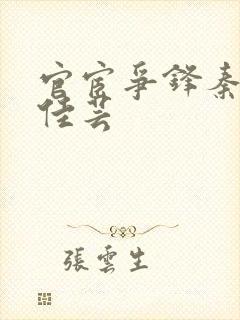 官宦爭鋒秦
佳芸
張雲生